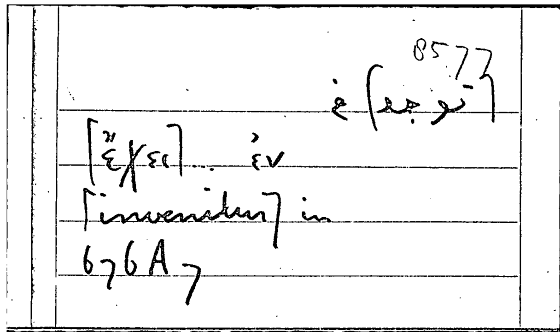 8577
[توجد] في
[ἔχει] .. ἐν
[invenitur] in
676A7